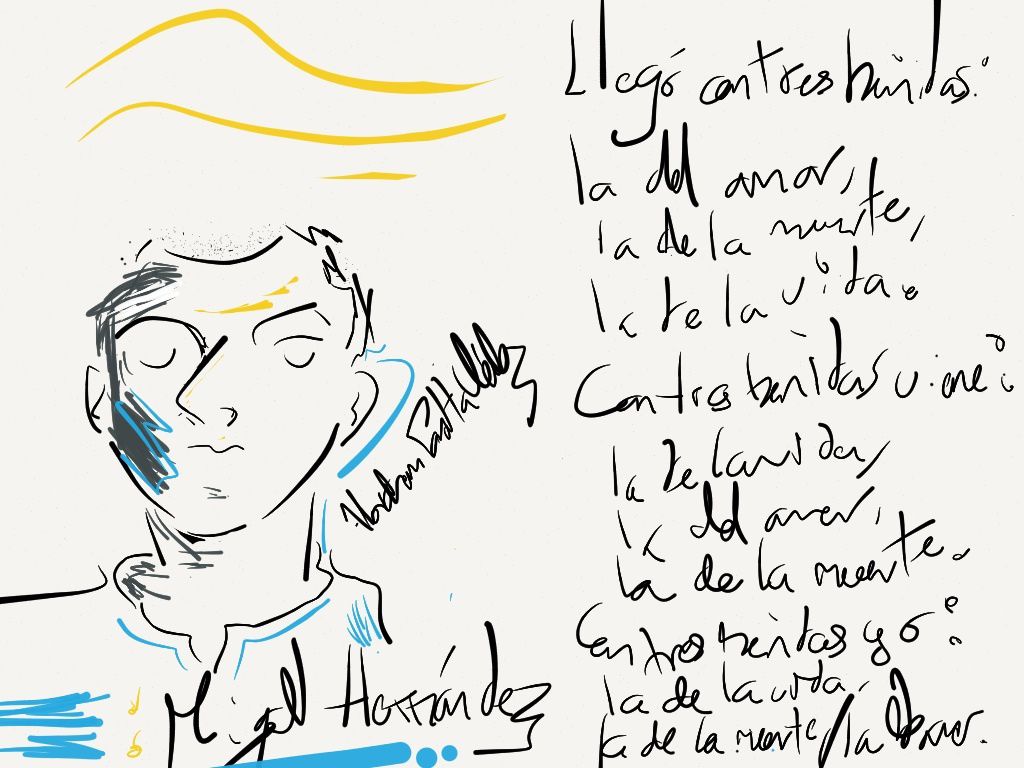 Llegó con tres heridas:
la del amor,
la de la muerte,
la de la vida.
Con tres heridas viene:
la de la vida,
la del amor,
la de la muerte.
Con tres heridas yo:
la de la vida,
la de la muerte, la del amor.
Miguel Hernández